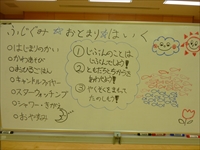 ふじぐみ☆おとまりほいく
○はじまりのかい
○おひるごはん
○キャンドルファイヤー
○スターウォッチング
○シャワー・きがえ
○おやすみ
①じぶんのことは、
じぶんでしよう!
②ともだちとちからを
あわせよう!
③やくそくをまもって
たのしもう!